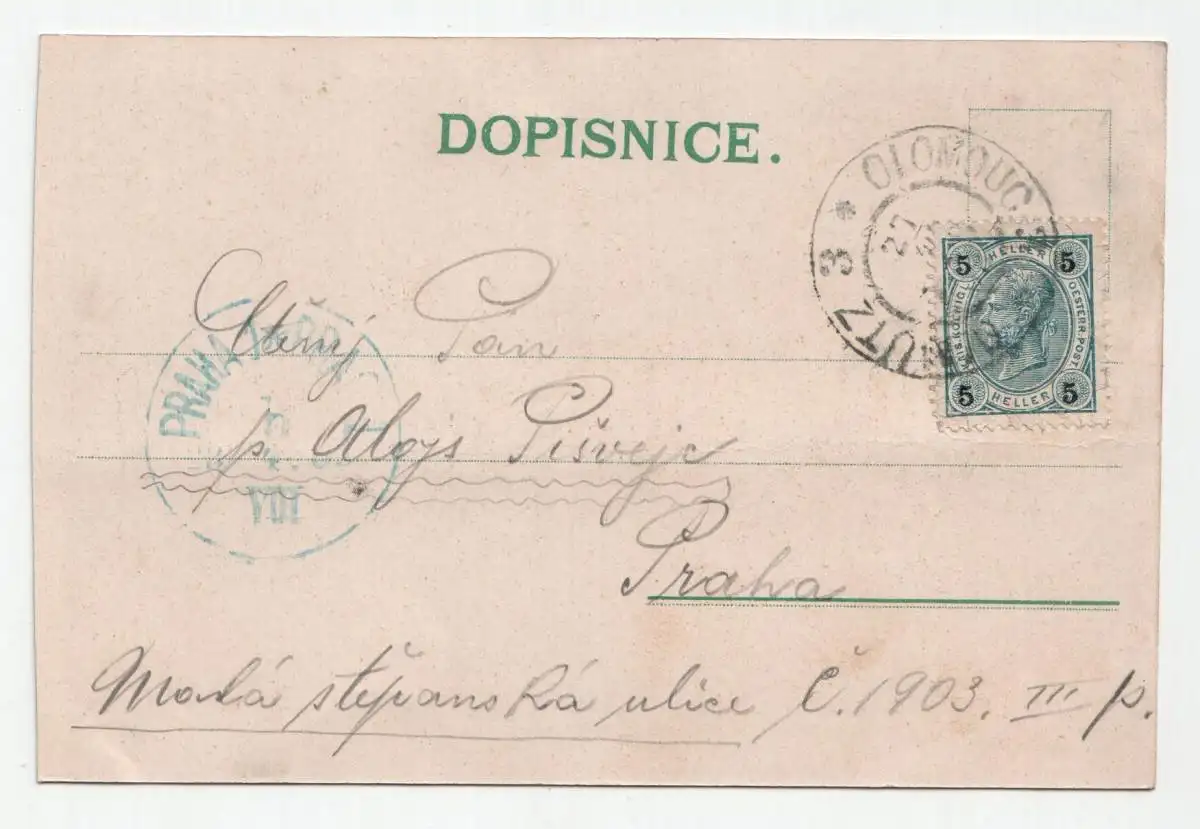 DOPISNICE.
* OLOMOUC
3
27
5 HELLER 5
OESTERR. POST
5 HELLER 5
PRAHA
VIII
Ctěný Pán
p. Alojs Pišvejc
Praha
Malá štěpanská ulice č. 1903. III p.